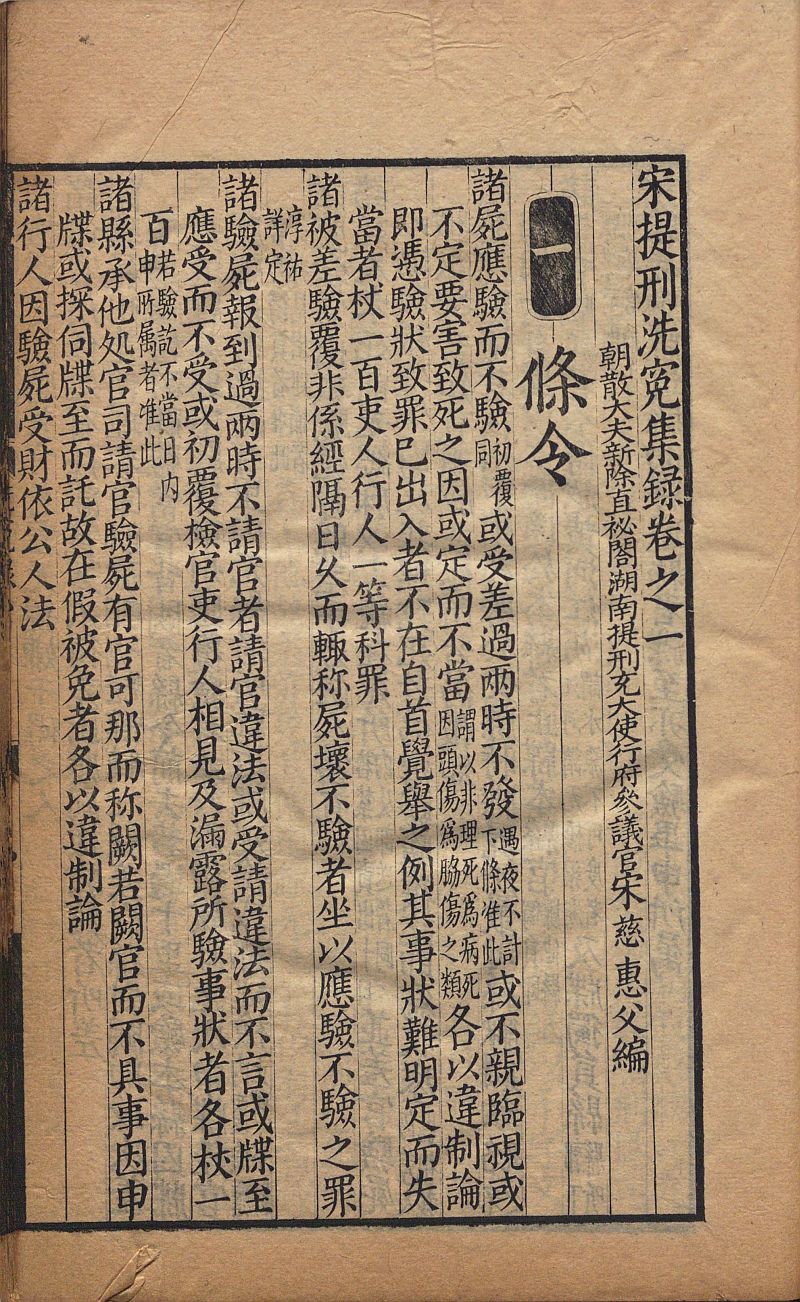 宋提刑洗冤集録卷之一
朝散大夫新除直祕閣湖南提刑充大使行府參議官宋慈惠父編
一 條令
諸屍應驗而不驗初覆同或受差過兩時不發遇夜不計下條准此或不親臨視或
不定要害致死之因或定而不當謂以非理死爲病死因頭傷爲脇傷之類各以違制論
即憑驗状致罪已出入者不在自首覺舉之例其事状難明定而失
當者杖一百吏人行人一等科罪
諸被差驗覆非係經隔日久而輙称屍壞不驗者坐以應驗不驗之罪
淳祐詳定
諸驗屍報到過兩時不請官者請官違法或受請違法而不言或牒至
應受而不受或初覆檢官吏行人相見及漏露所驗事状者各杖一
百若驗訖不當日内申所属者准此
諸縣承他処官司請官驗屍有官可那而称闕若闕官而不具事因申
牒或探伺牒至而託故在假被免者各以違制論
諸行人因驗屍受財依公人法